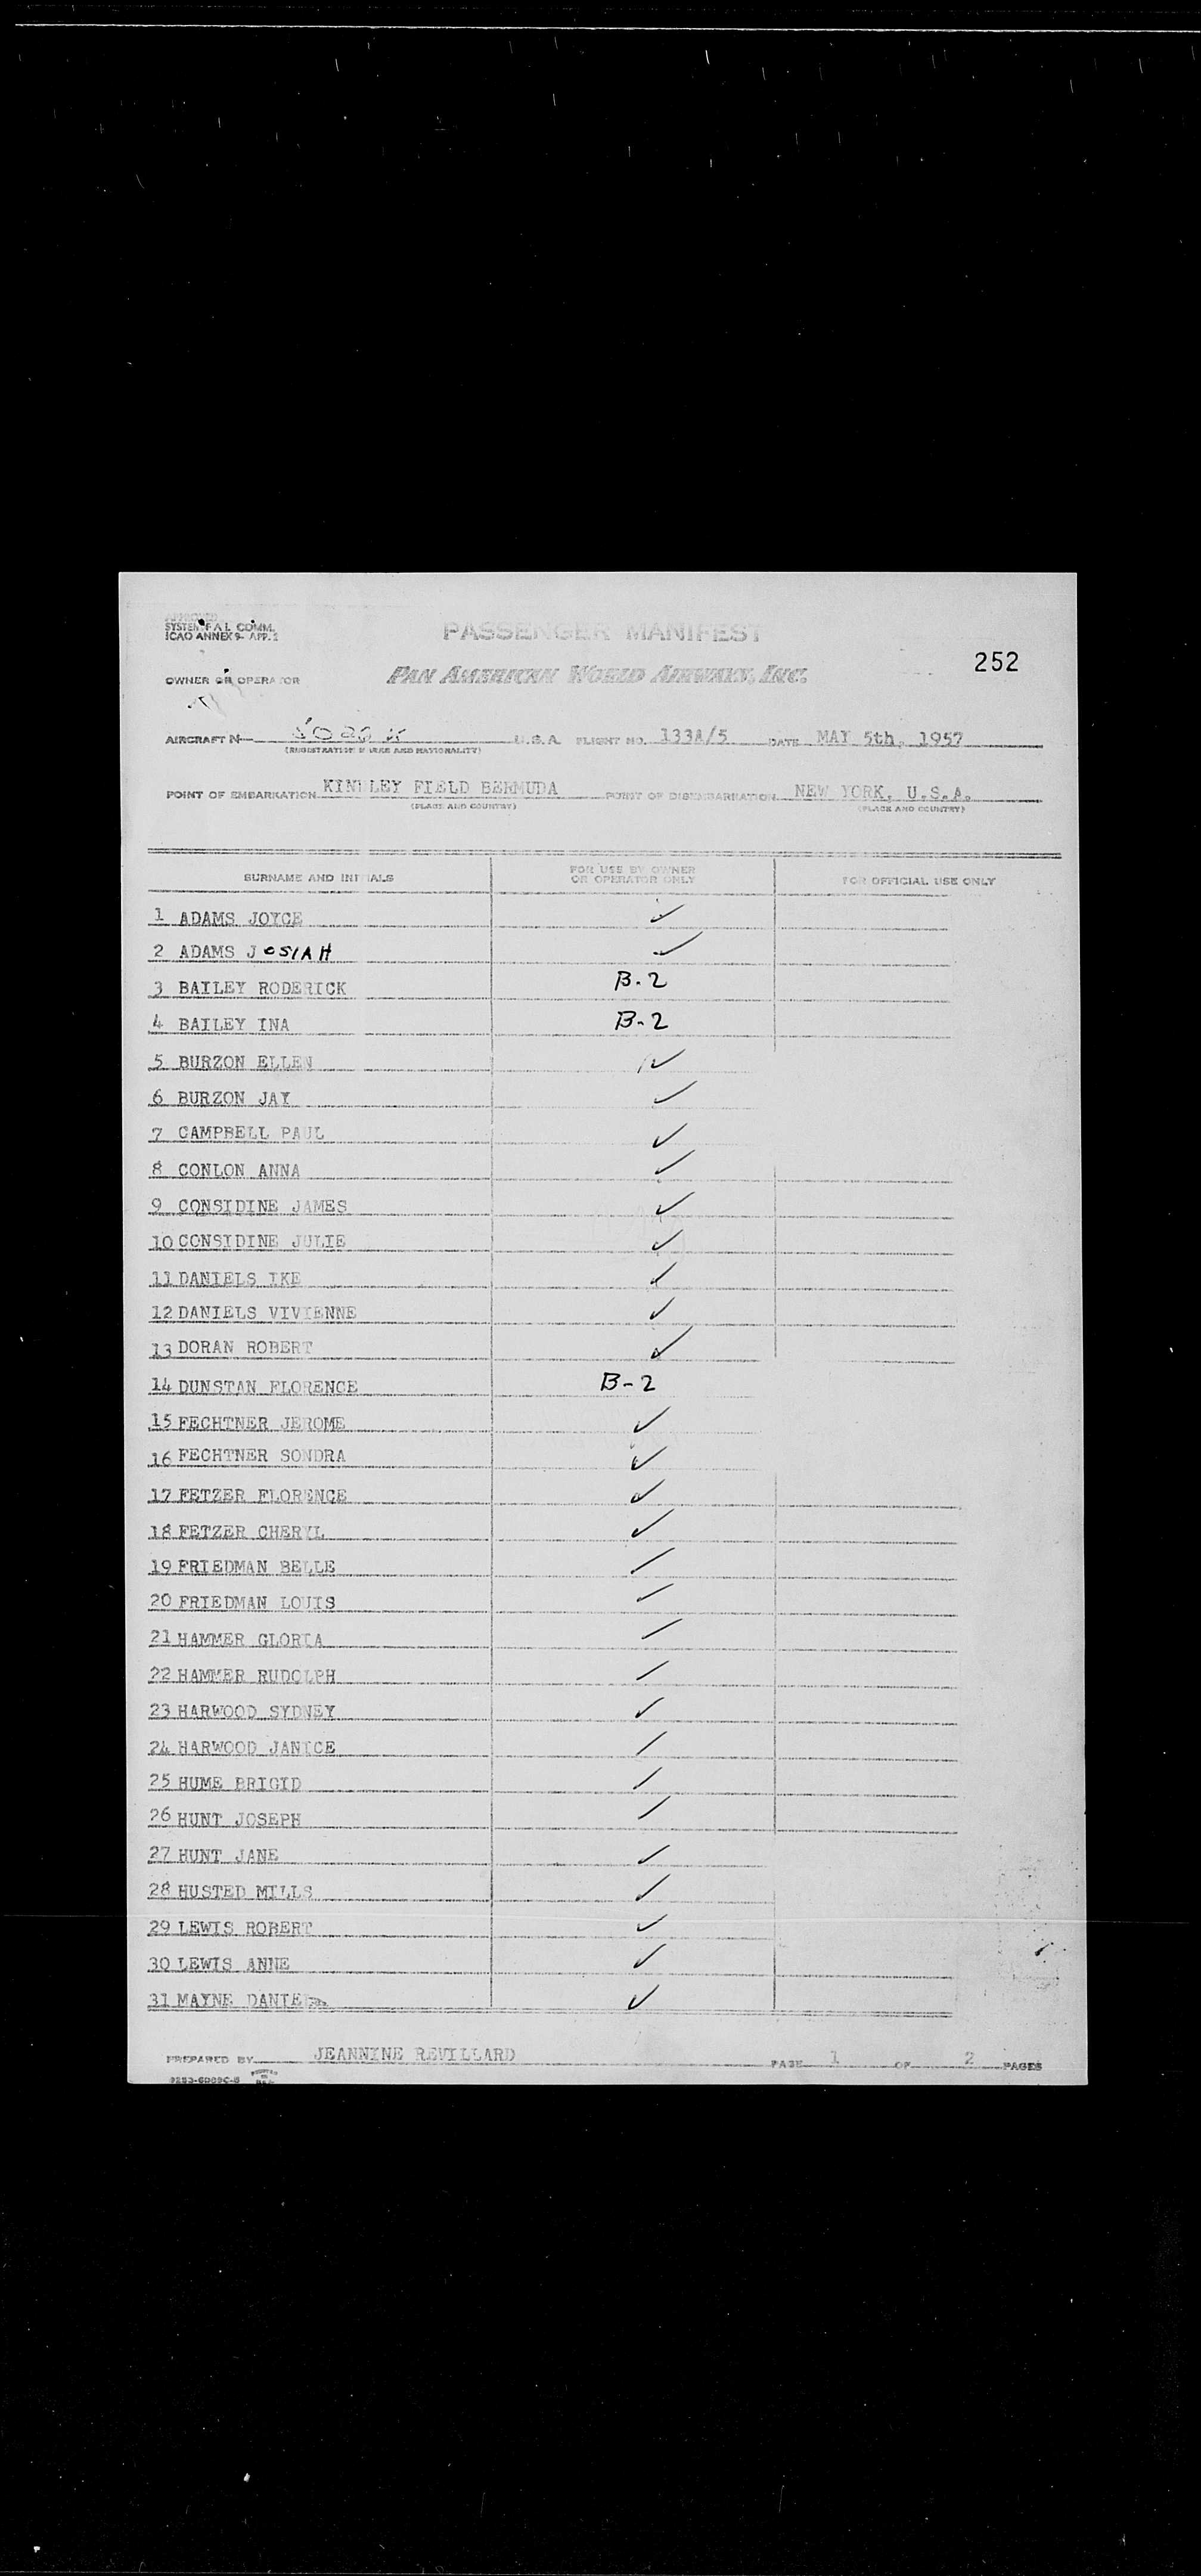 APPROVED
SYSTEM F.A.L. COMM.
ICAO ANNEX 9- APP. 2
PASSENGER MANIFEST
252
OWNER OR OPERATOR PAN AMERICAN WORLD AIRWAYS, INC.
AIRCRAFT N U.S.A. FLIGHT NO. 133A/5 DATE MAY 5th, 1957
(REGISTRATION MARKS AND NATIONALITY)
POINT OF EMBARKATION KINDLEY FIELD BERMUDA POINT OF DISEMBARKATION NEW YORK, U.S.A.
(PLACE AND COUNTRY) (PLACE AND COUNTRY)
SURNAME AND INITIALS FOR USE BY OWNER OR OPERATOR ONLY FOR OFFICIAL USE ONLY
1 ADAMS JOYCE ✓
2 ADAMS JOSIAH ✓
3 BAILEY RODERICK B-2
4 BAILEY INA B-2
5 BURZON ELLEN ✓
6 BURZON JAY ✓
7 CAMPBELL PAUL ✓
8 CONLON ANNA ✓
9 CONSIDINE JAMES ✓
10 CONSIDINE JULIE ✓
11 DANIELS IKE ✓
12 DANIELS VIVIENNE ✓
13 DORAN ROBERT ✓
14 DUNSTAN FLORENCE B-2
15 FECHTNER JEROME ✓
16 FECHTNER SONDRA ✓
17 FETZER FLORENCE ✓
18 FETZER CHERYL ✓
19 FRIEDMAN BELLE ✓
20 FRIEDMAN LOUIS ✓
21 HAMMER GLORIA ✓
22 HAMMER RUDOLPH ✓
23 HARWOOD SYDNEY ✓
24 HARWOOD JANICE ✓
25 HUME BRIGID ✓
26 HUNT JOSEPH ✓
27 HUNT JANE ✓
28 HUSTED MILLS ✓
29 LEWIS ROBERT ✓
30 LEWIS ANNE ✓
31 MAYNE DANIE ✓
PREPARED BY JEANNINE REVILLARD PAGE 1 OF 2 PAGES